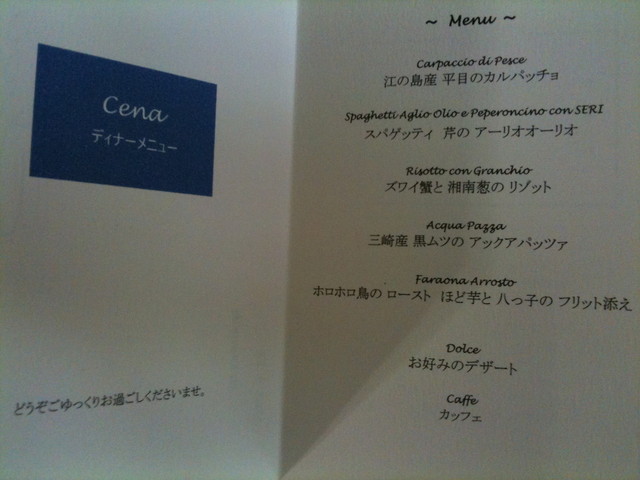 Cena
ディナーメニュー
どうぞごゆっくりお過ごしくださいませ。
~ Menu ~
Carpaccio di Pesce
江の島産 平目のカルパッチョ
Spaghetti Aglio Olio e Peperoncino con SERI
スパゲッティ 芹の アーリオオーリオ
Risotto con Granchio
ズワイ蟹と 湘南葱の リゾット
Acqua Pazza
三崎産 黒ムツの アックアパッツァ
Faraona Arrosto
ホロホロ鳥の ロースト ほど芋と 八っ子の フリット添え
Dolce
お好みのデザート
Caffe
カッフェ